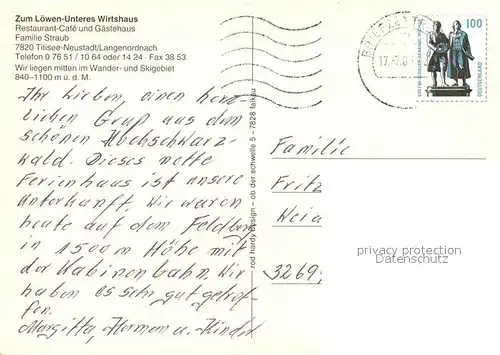 Zum Löwen-Unteres Wirtshaus
Restaurant-Café und Gästehaus
Familie Straub
7820 Titisee-Neustadt/Langenordnach
Telefon 0 76 51 / 10 64 oder 14 24 · Fax 38 53
Wir liegen mitten im Wander- und Skigebiet
840–1100 m ü. d. M.
Ihr Lieben, einen herz-
lichen Gruß aus dem
schönen Hochschwarz-
wald. Dieses nette
Ferienhaus ist unsere
Unterkunft. Wir waren
heute auf dem Feldberg
in 1500 m Höhe mit
der Kabinenbahn. Wir
haben es sehr gut getrof-
fen.
Margitta, Herman u. Kinder
rod hardy design – ob der schwelle 5 – 7828 falkau
100
DEUTSCHLAND
Familie
Fritz
3269,
privacy protection
Datenschutz